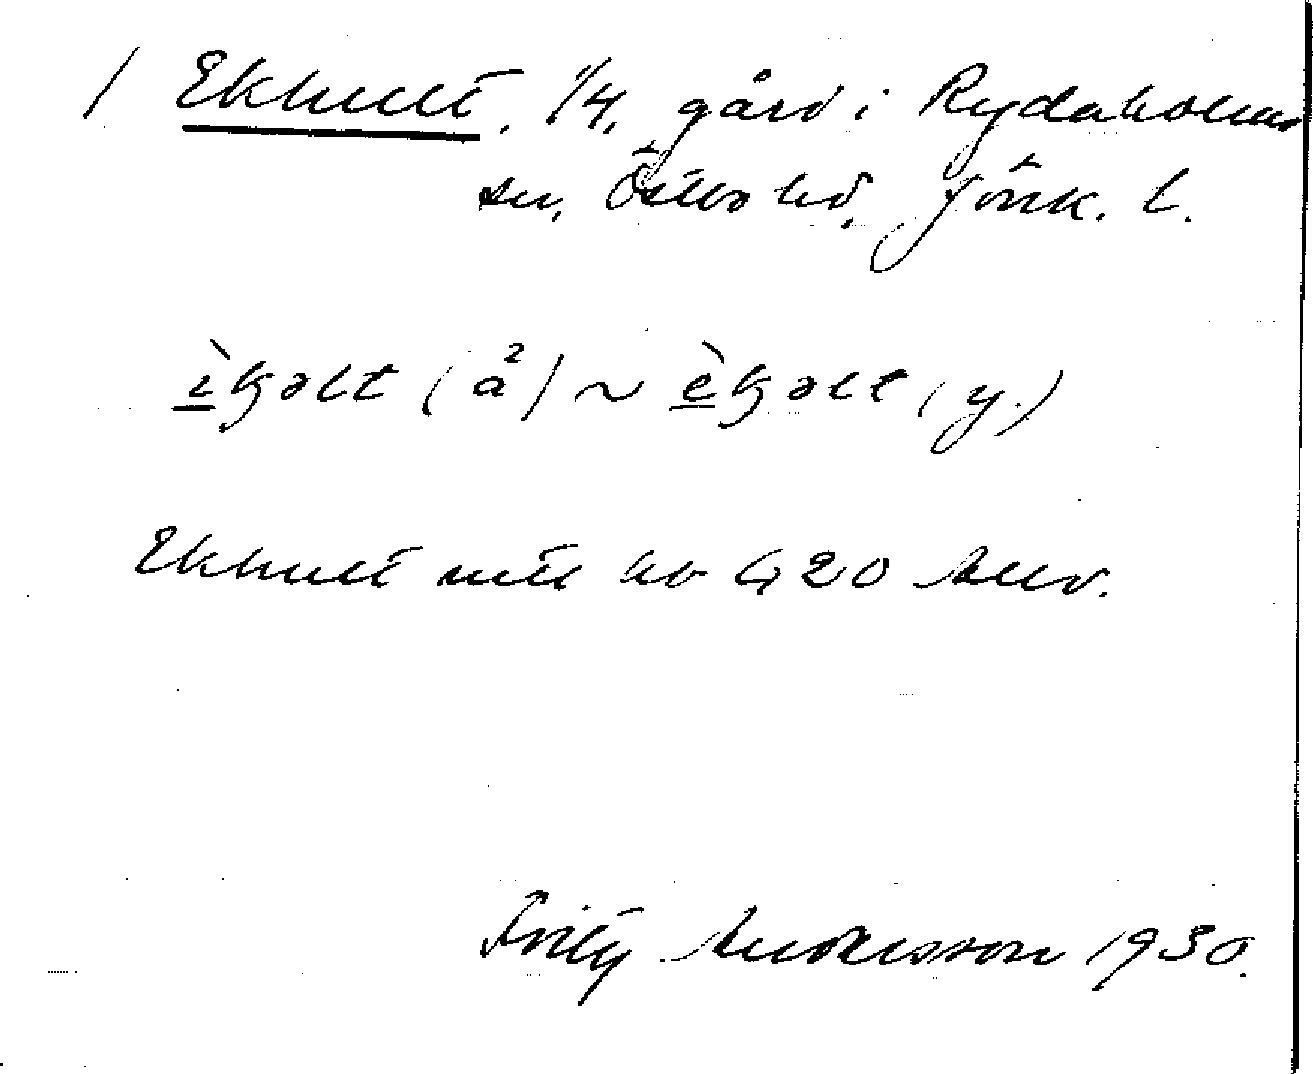 / Ekhult, 1/4, gård i Rydaholms
sn, Östbo hd, Jönk. l.
ìkəlt (å²) ~ èkəlt (y.)
Ekhult mtl bo 420 Allv.
Fritz Andersson 1930.